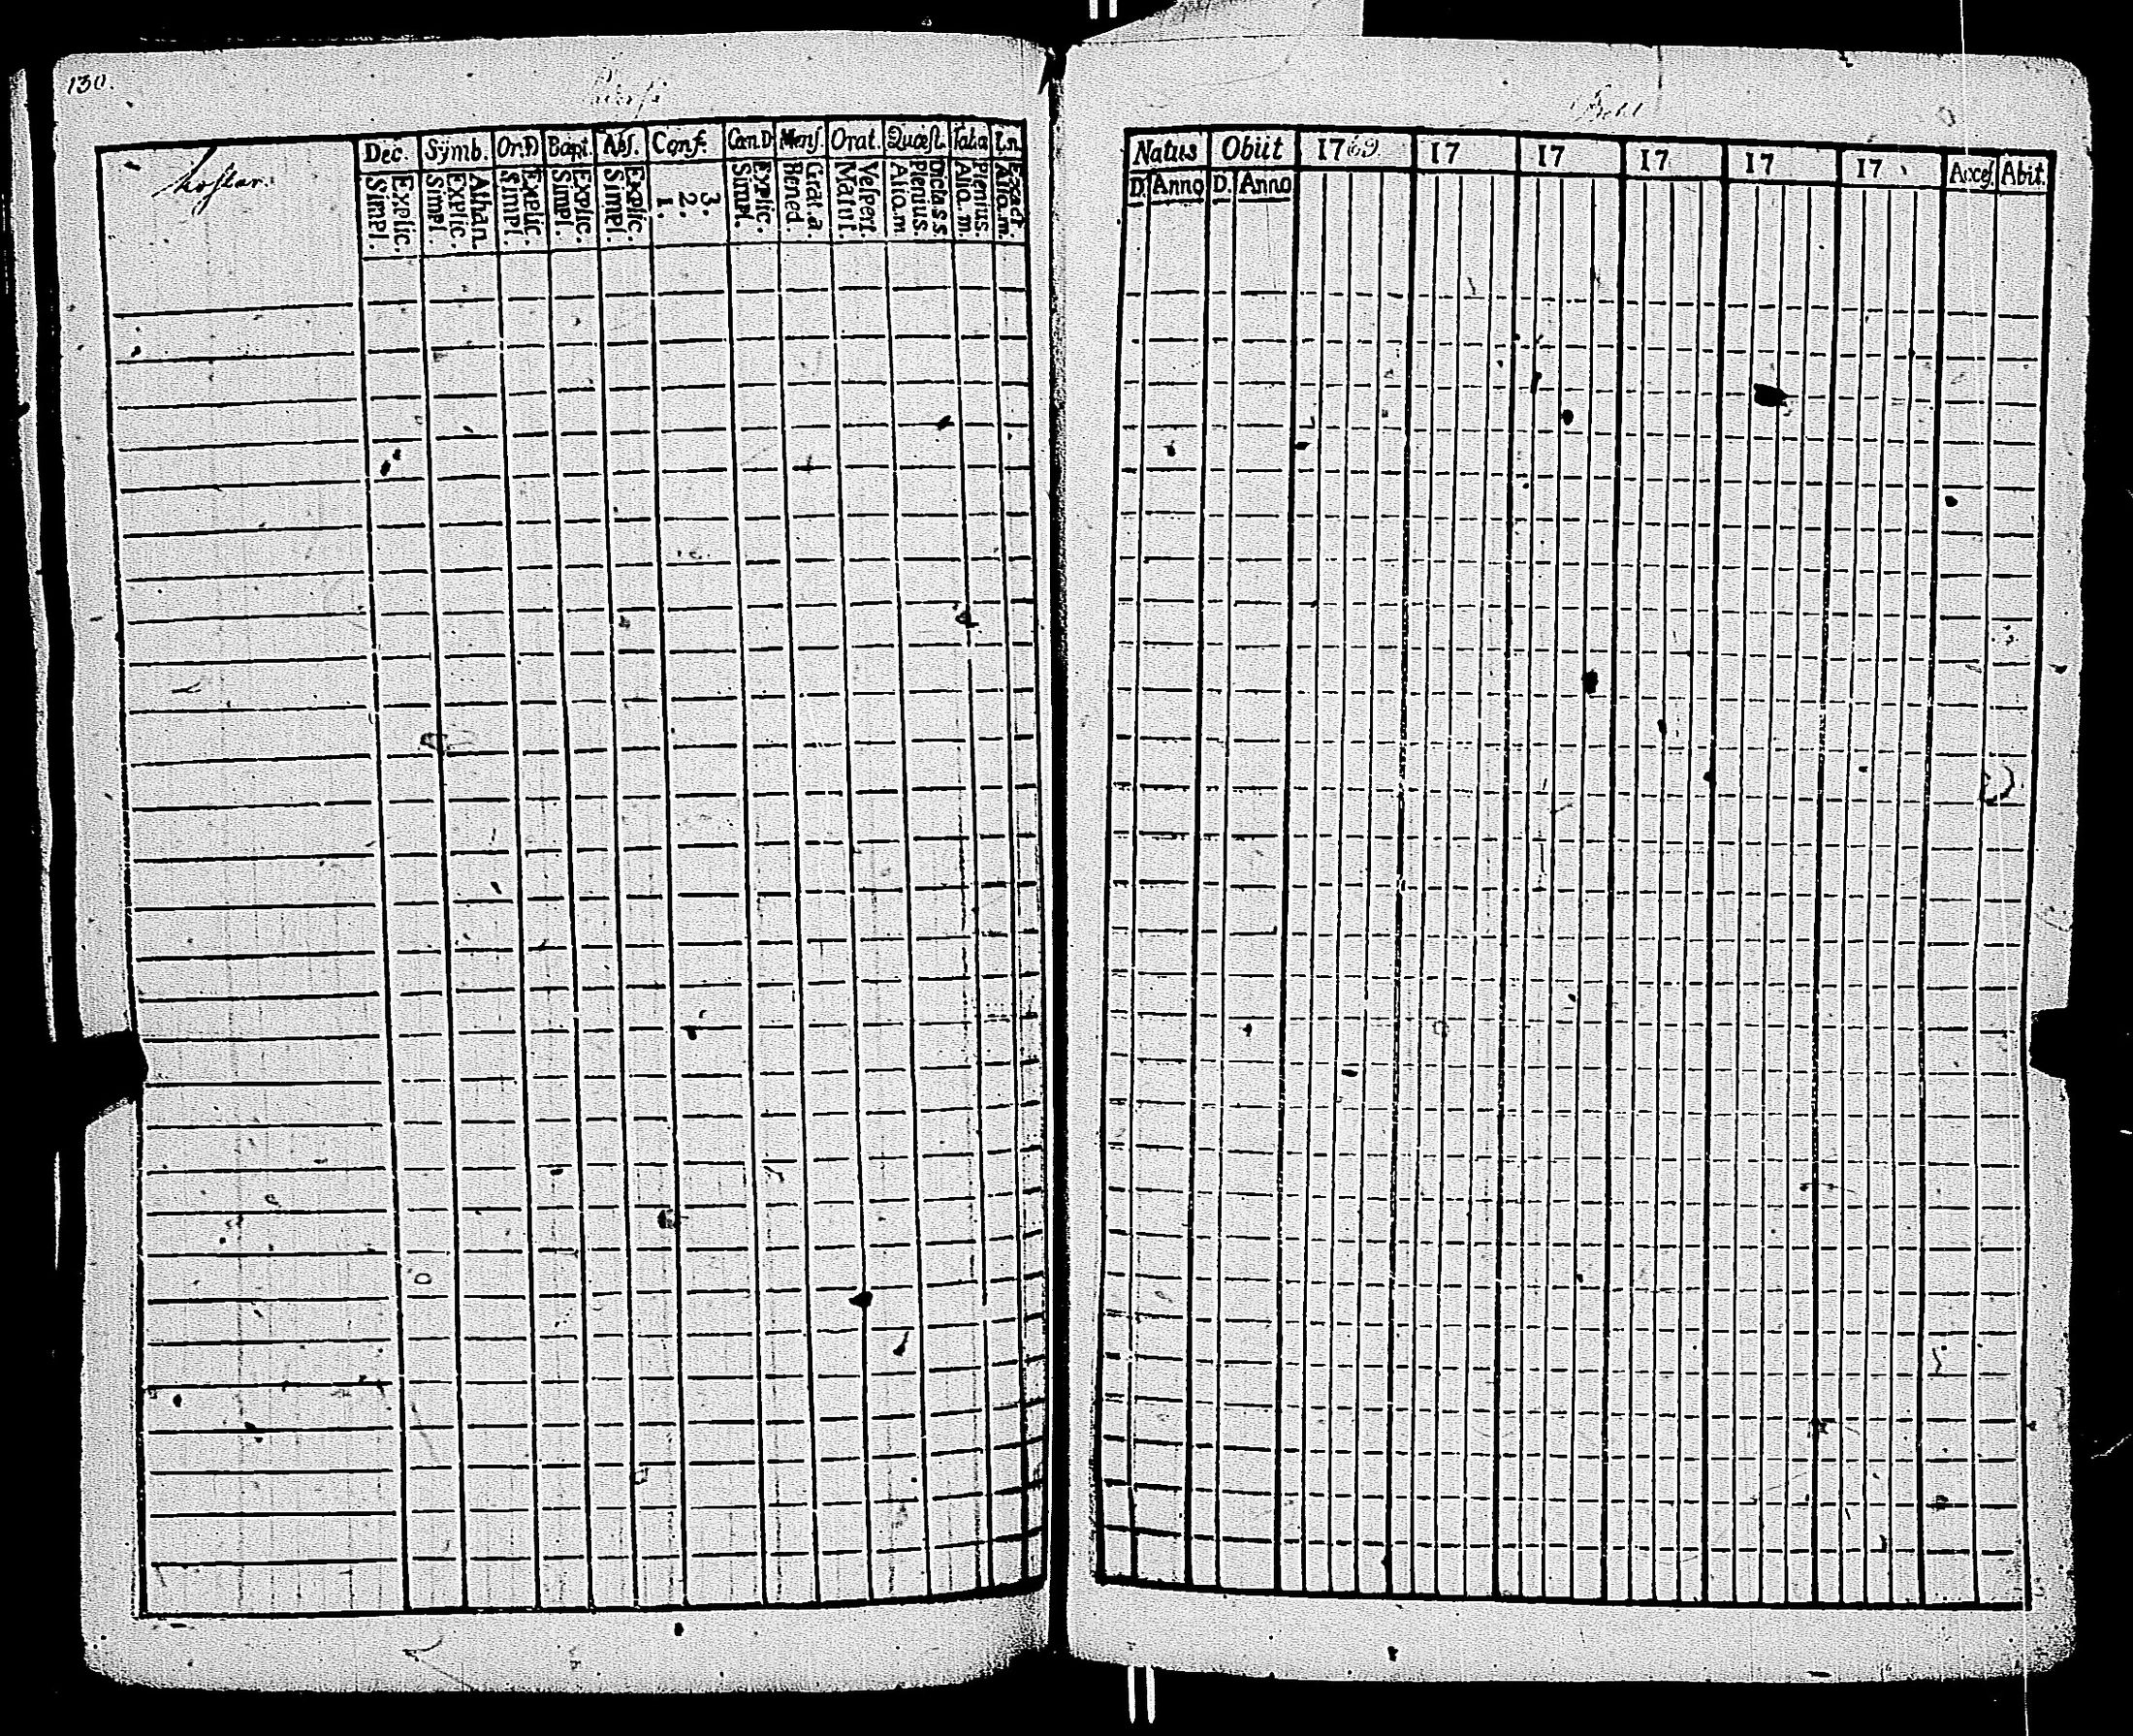 130.
Dec. Symb. Or.D Bapt. Abs. Conf. Can D. Mens. Orat. Quæst. Tab.a In.
Simpl. Explic. Simpl. Explic. Athan. Simpl. Explic. Simpl. Explic. Simpl. Explic. 1. 2. 3. Simpl. Explic. Bened. Grat.a Matut. Vespert. Alio.m Plenius Dicta.s.s Alio.m. Plenius. Alio.m. Exact.
Natus Obiit 1769. 17 17 17 17 17 Acces. Abit.
D. Anno D. Anno